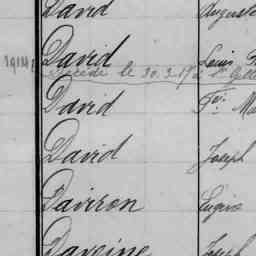 David Auguste
1914 David Louis
Décédé le 30.3.17 à St
David
David Joseph
Daviron Eugène
Daveine Joseph